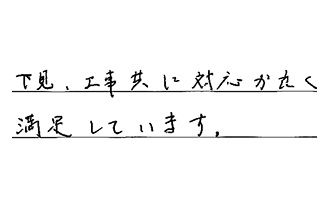 下見、工事共に対応が良く
満足しています。